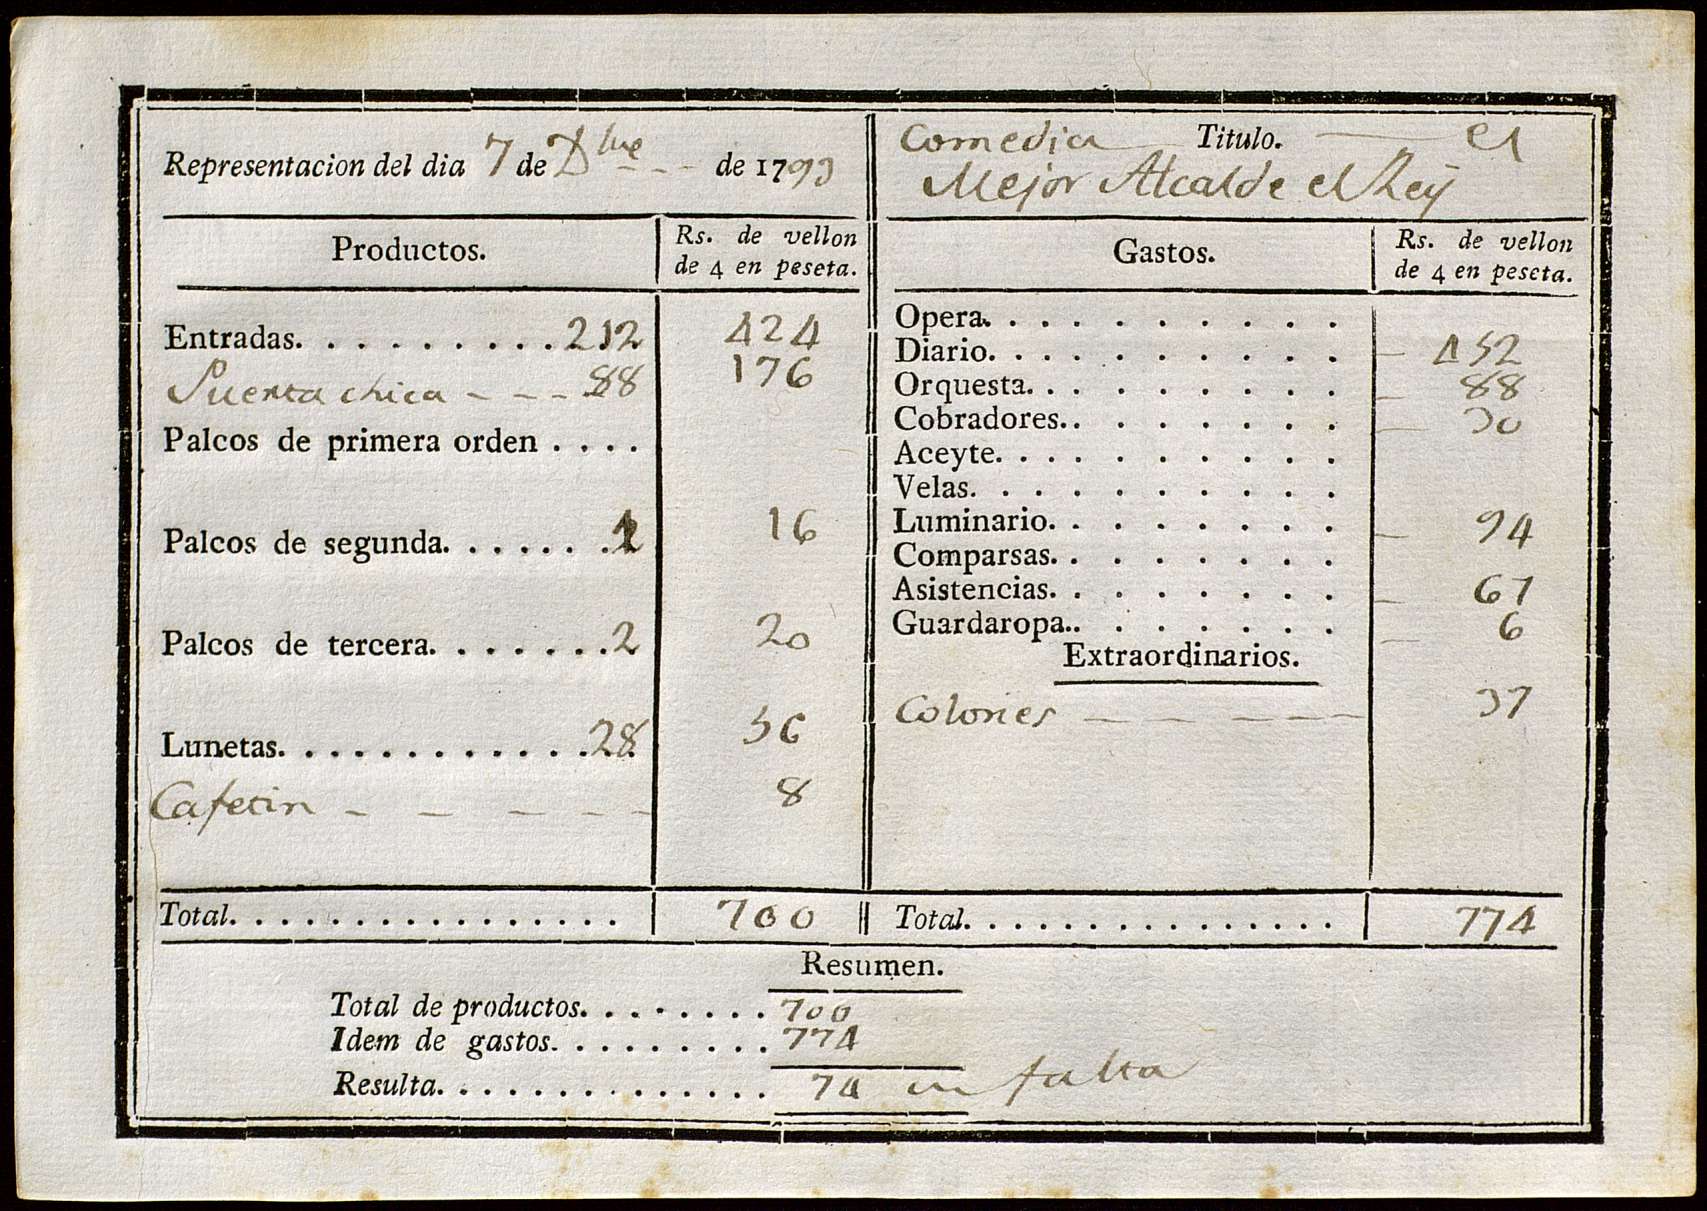 Representacion del dia 7 de Dbre - - - de 1793
Productos. Rs. de vellon
de 4 en peseta.
Entradas. . . . . . . . . . 212 424
Puerta chica - - - - 88 176
Palcos de primera orden . . . .
Palcos de segunda. . . . . . . 1 16
Palcos de tercera. . . . . . . 2 20
Lunetas. . . . . . . . . . . . 28 56
Cafetin - - - - - 8
Total. . . . . . . . . . . . . . . . 700
Comedia Titulo. el
Mejor Alcalde el Rey
Gastos. Rs. de vellon
de 4 en peseta.
Opera. . . . . . . . . .
Diario. . . . . . . . . . 452
Orquesta. . . . . . . . . 88
Cobradores. . . . . . . . 30
Aceyte. . . . . . . . . .
Velas. . . . . . . . . .
Luminario. . . . . . . . 94
Comparsas. . . . . . . .
Asistencias. . . . . . . . 67
Guardaropa. . . . . . . . 6
Extraordinarios.
Colories - - - - - - 37
Total. . . . . . . . . . . . . . . 774
Resumen.
Total de productos. . . . . . . . 700
Idem de gastos. . . . . . . . . 774
Resulta. . . . . . . . . . . . . 74 en falta